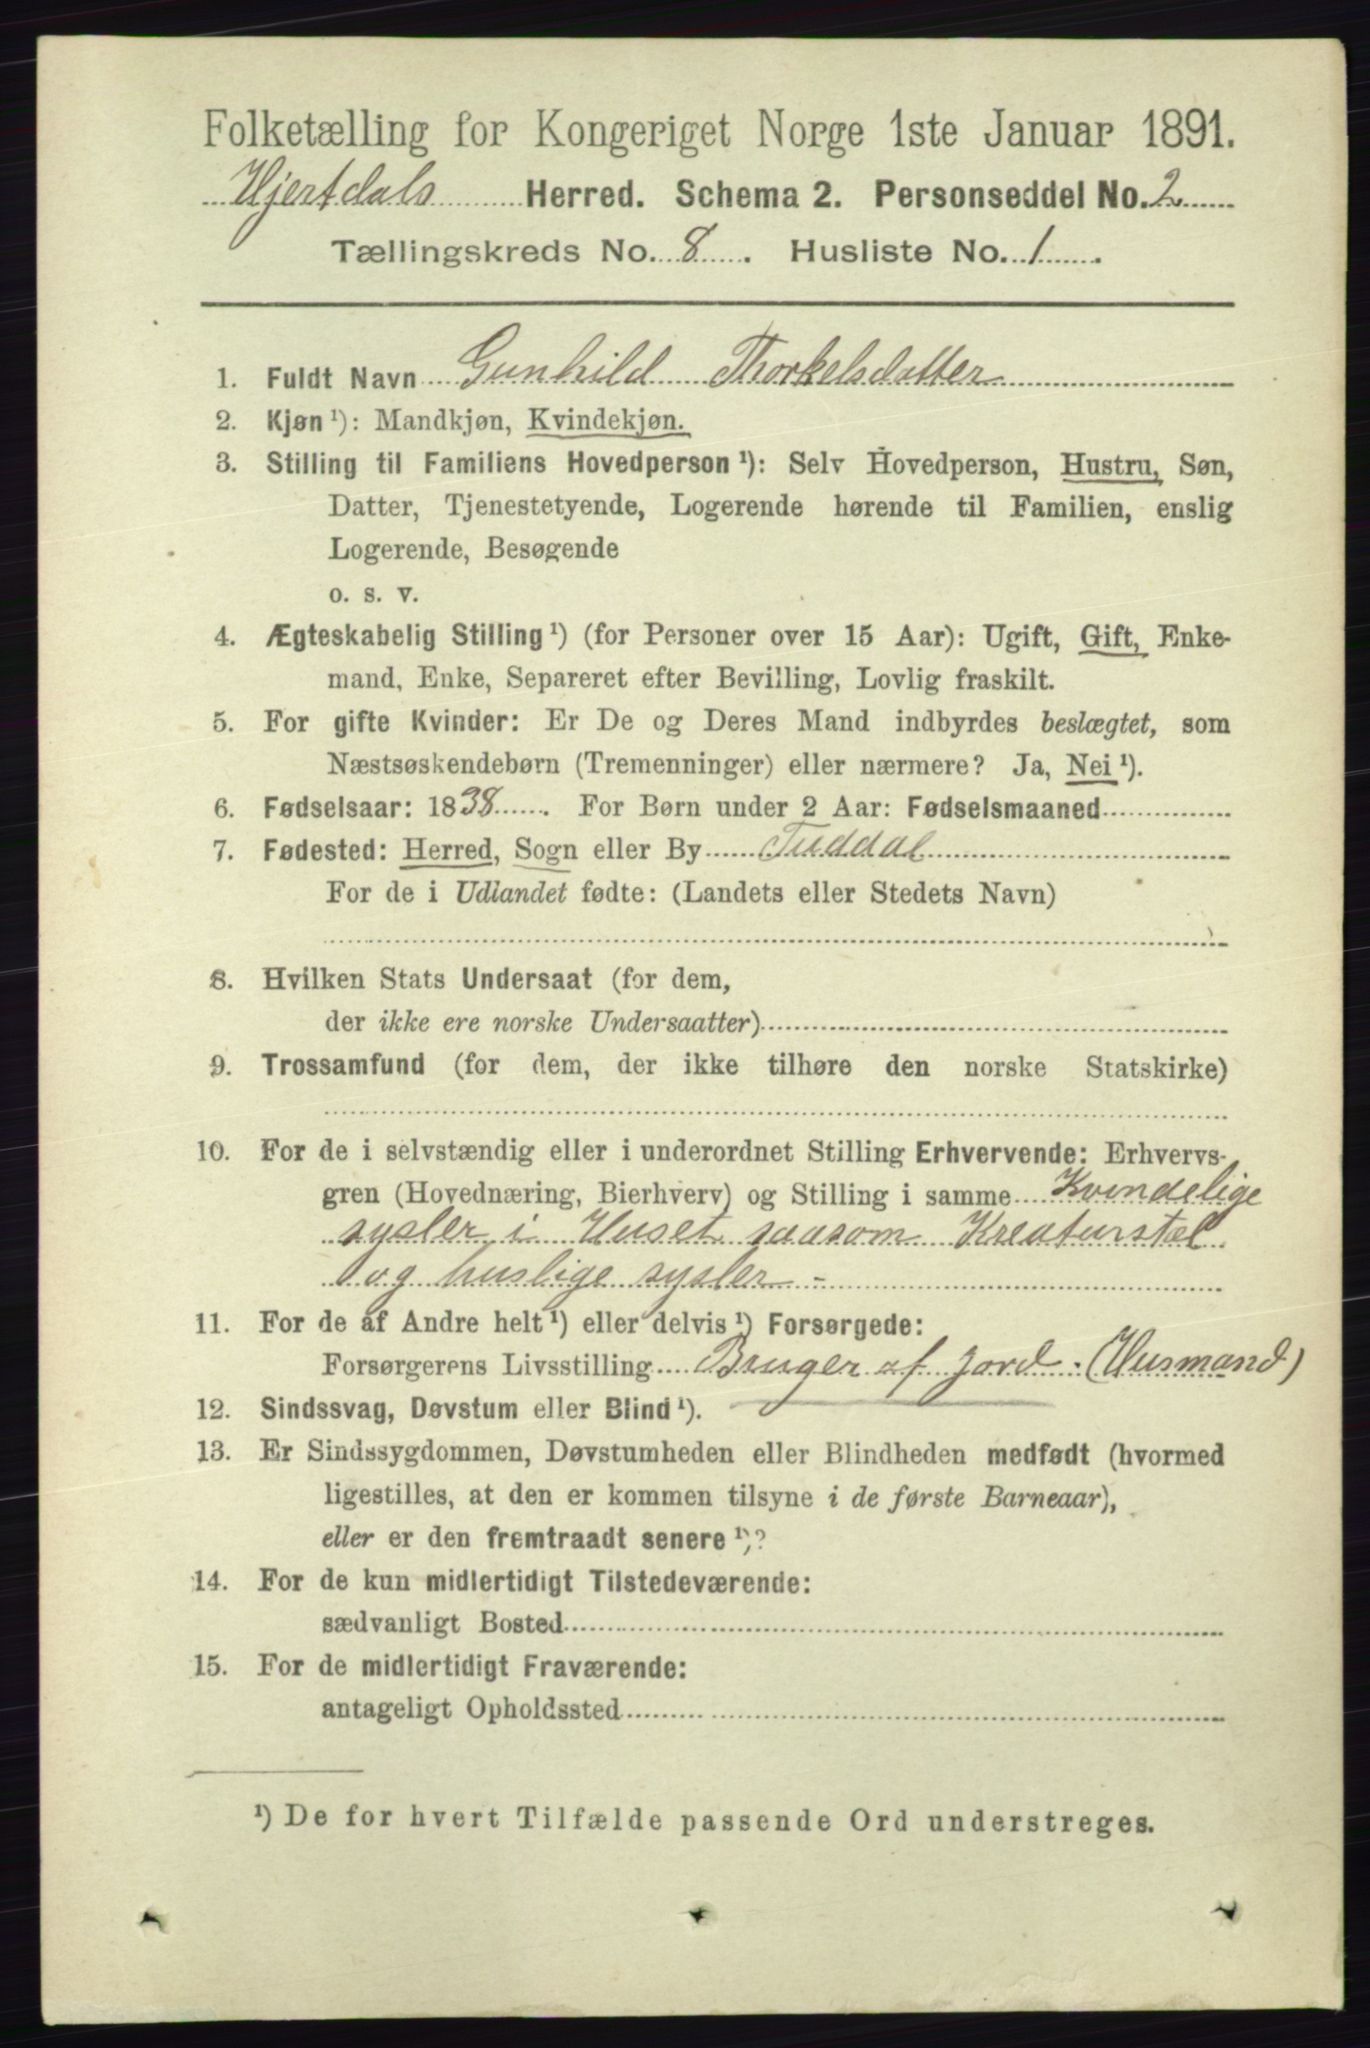 Folketælling for Kongeriget Norge 1ste Januar 1891.
Hjertdals Herred. Schema 2. Personseddel No. 2
Tællingskreds No. 8. Husliste No. 1.
1. Fuldt Navn Gunhild Thorkelsdatter
2. Kjøn ¹): Mandkjøn, Kvindekjøn.
3. Stilling til Familiens Hovedperson ¹): Selv Hovedperson, Hustru, Søn,
Datter, Tjenestetyende, Logerende hørende til Familien, enslig
Logerende, Besøgende
o. s. v.
4. Ægteskabelig Stilling ¹) (for Personer over 15 Aar): Ugift, Gift, Enke-
mand, Enke, Separeret efter Bevilling, Lovlig fraskilt.
5. For gifte Kvinder: Er De og Deres Mand indbyrdes beslægtet, som
Næstsøskendebørn (Tremenninger) eller nærmere? Ja, Nei ¹).
6. Fødselsaar: 1838. For Børn under 2 Aar: Fødselsmaaned
7. Fødested: Herred, Sogn eller By Tuddal
For de i Udlandet fødte: (Landets eller Stedets Navn)
8. Hvilken Stats Undersaat (for dem,
der ikke ere norske Undersaatter)
9. Trossamfund (for dem, der ikke tilhøre den norske Statskirke)
10. For de i selvstændig eller i underordnet Stilling Erhvervende: Erhvervs-
gren (Hovednæring, Bierhverv) og Stilling i samme Kvindelige
sysler i Huset saasom Kreaturstel
og huslige sysler -
11. For de af Andre helt ¹) eller delvis ¹) Forsørgede:
Forsørgerens Livsstilling Bruger af Jord. (Husmand)
12. Sindssvag, Døvstum eller Blind ¹).
13. Er Sindssygdommen, Døvstumheden eller Blindheden medfødt (hvormed
ligestilles, at den er kommen tilsyne i de første Barneaar),
eller er den fremtraadt senere ¹)?
14. For de kun midlertidigt Tilstedeværende:
sædvanligt Bosted
15. For de midlertidigt Fraværende:
antageligt Opholdssted
¹) De for hvert Tilfælde passende Ord understreges.